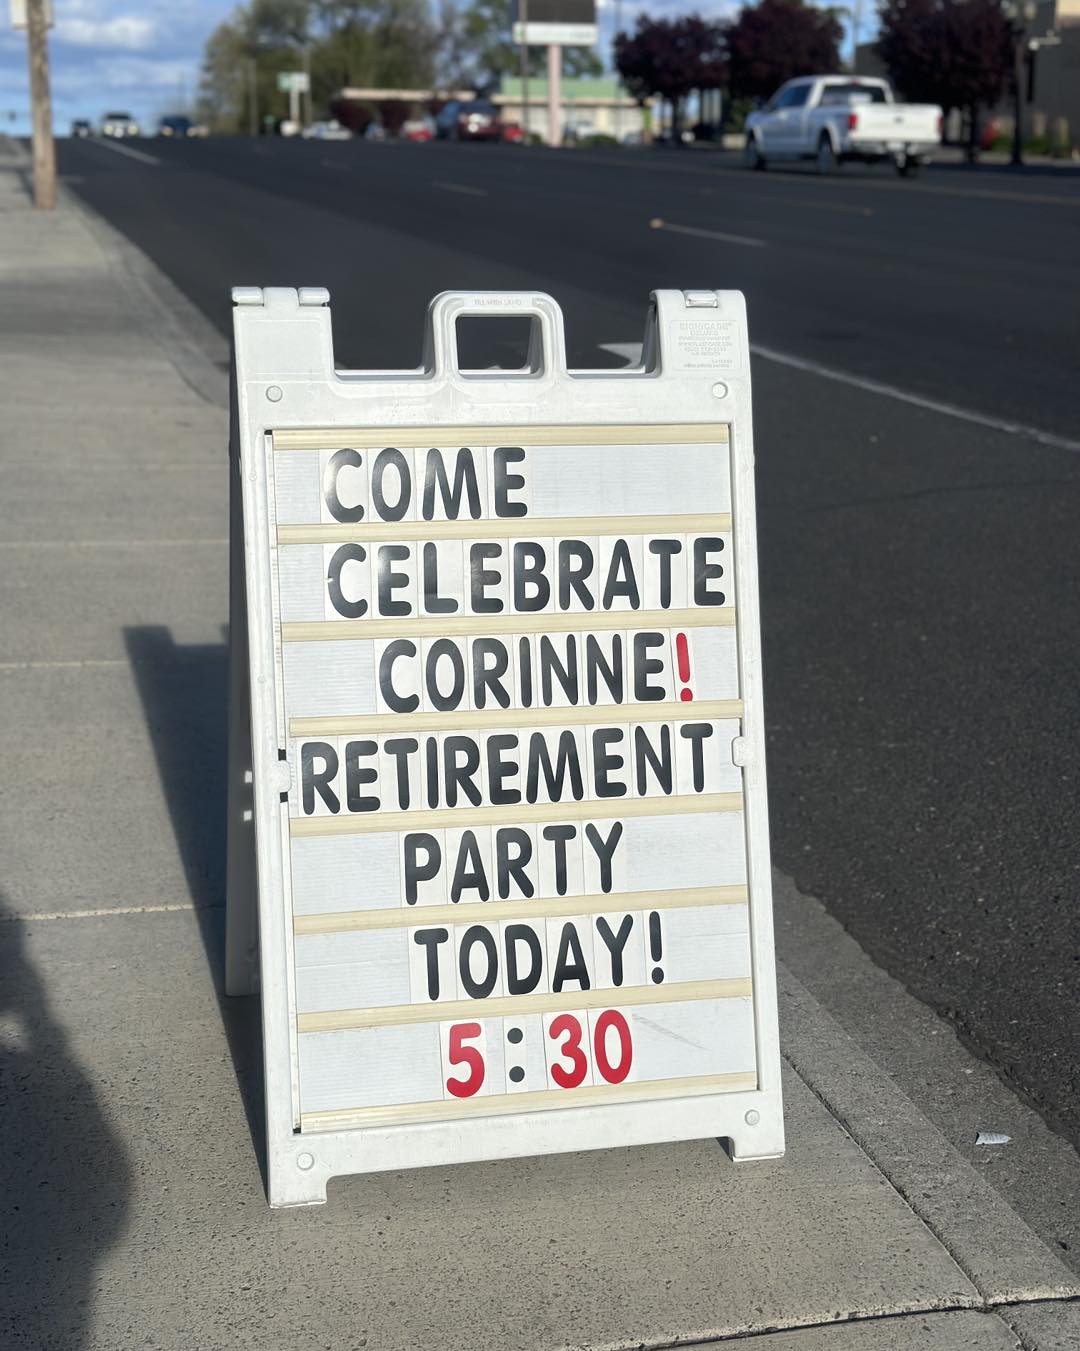 COME
CELEBRATE
CORINNE!
RETIREMENT
PARTY
TODAY!
5:30